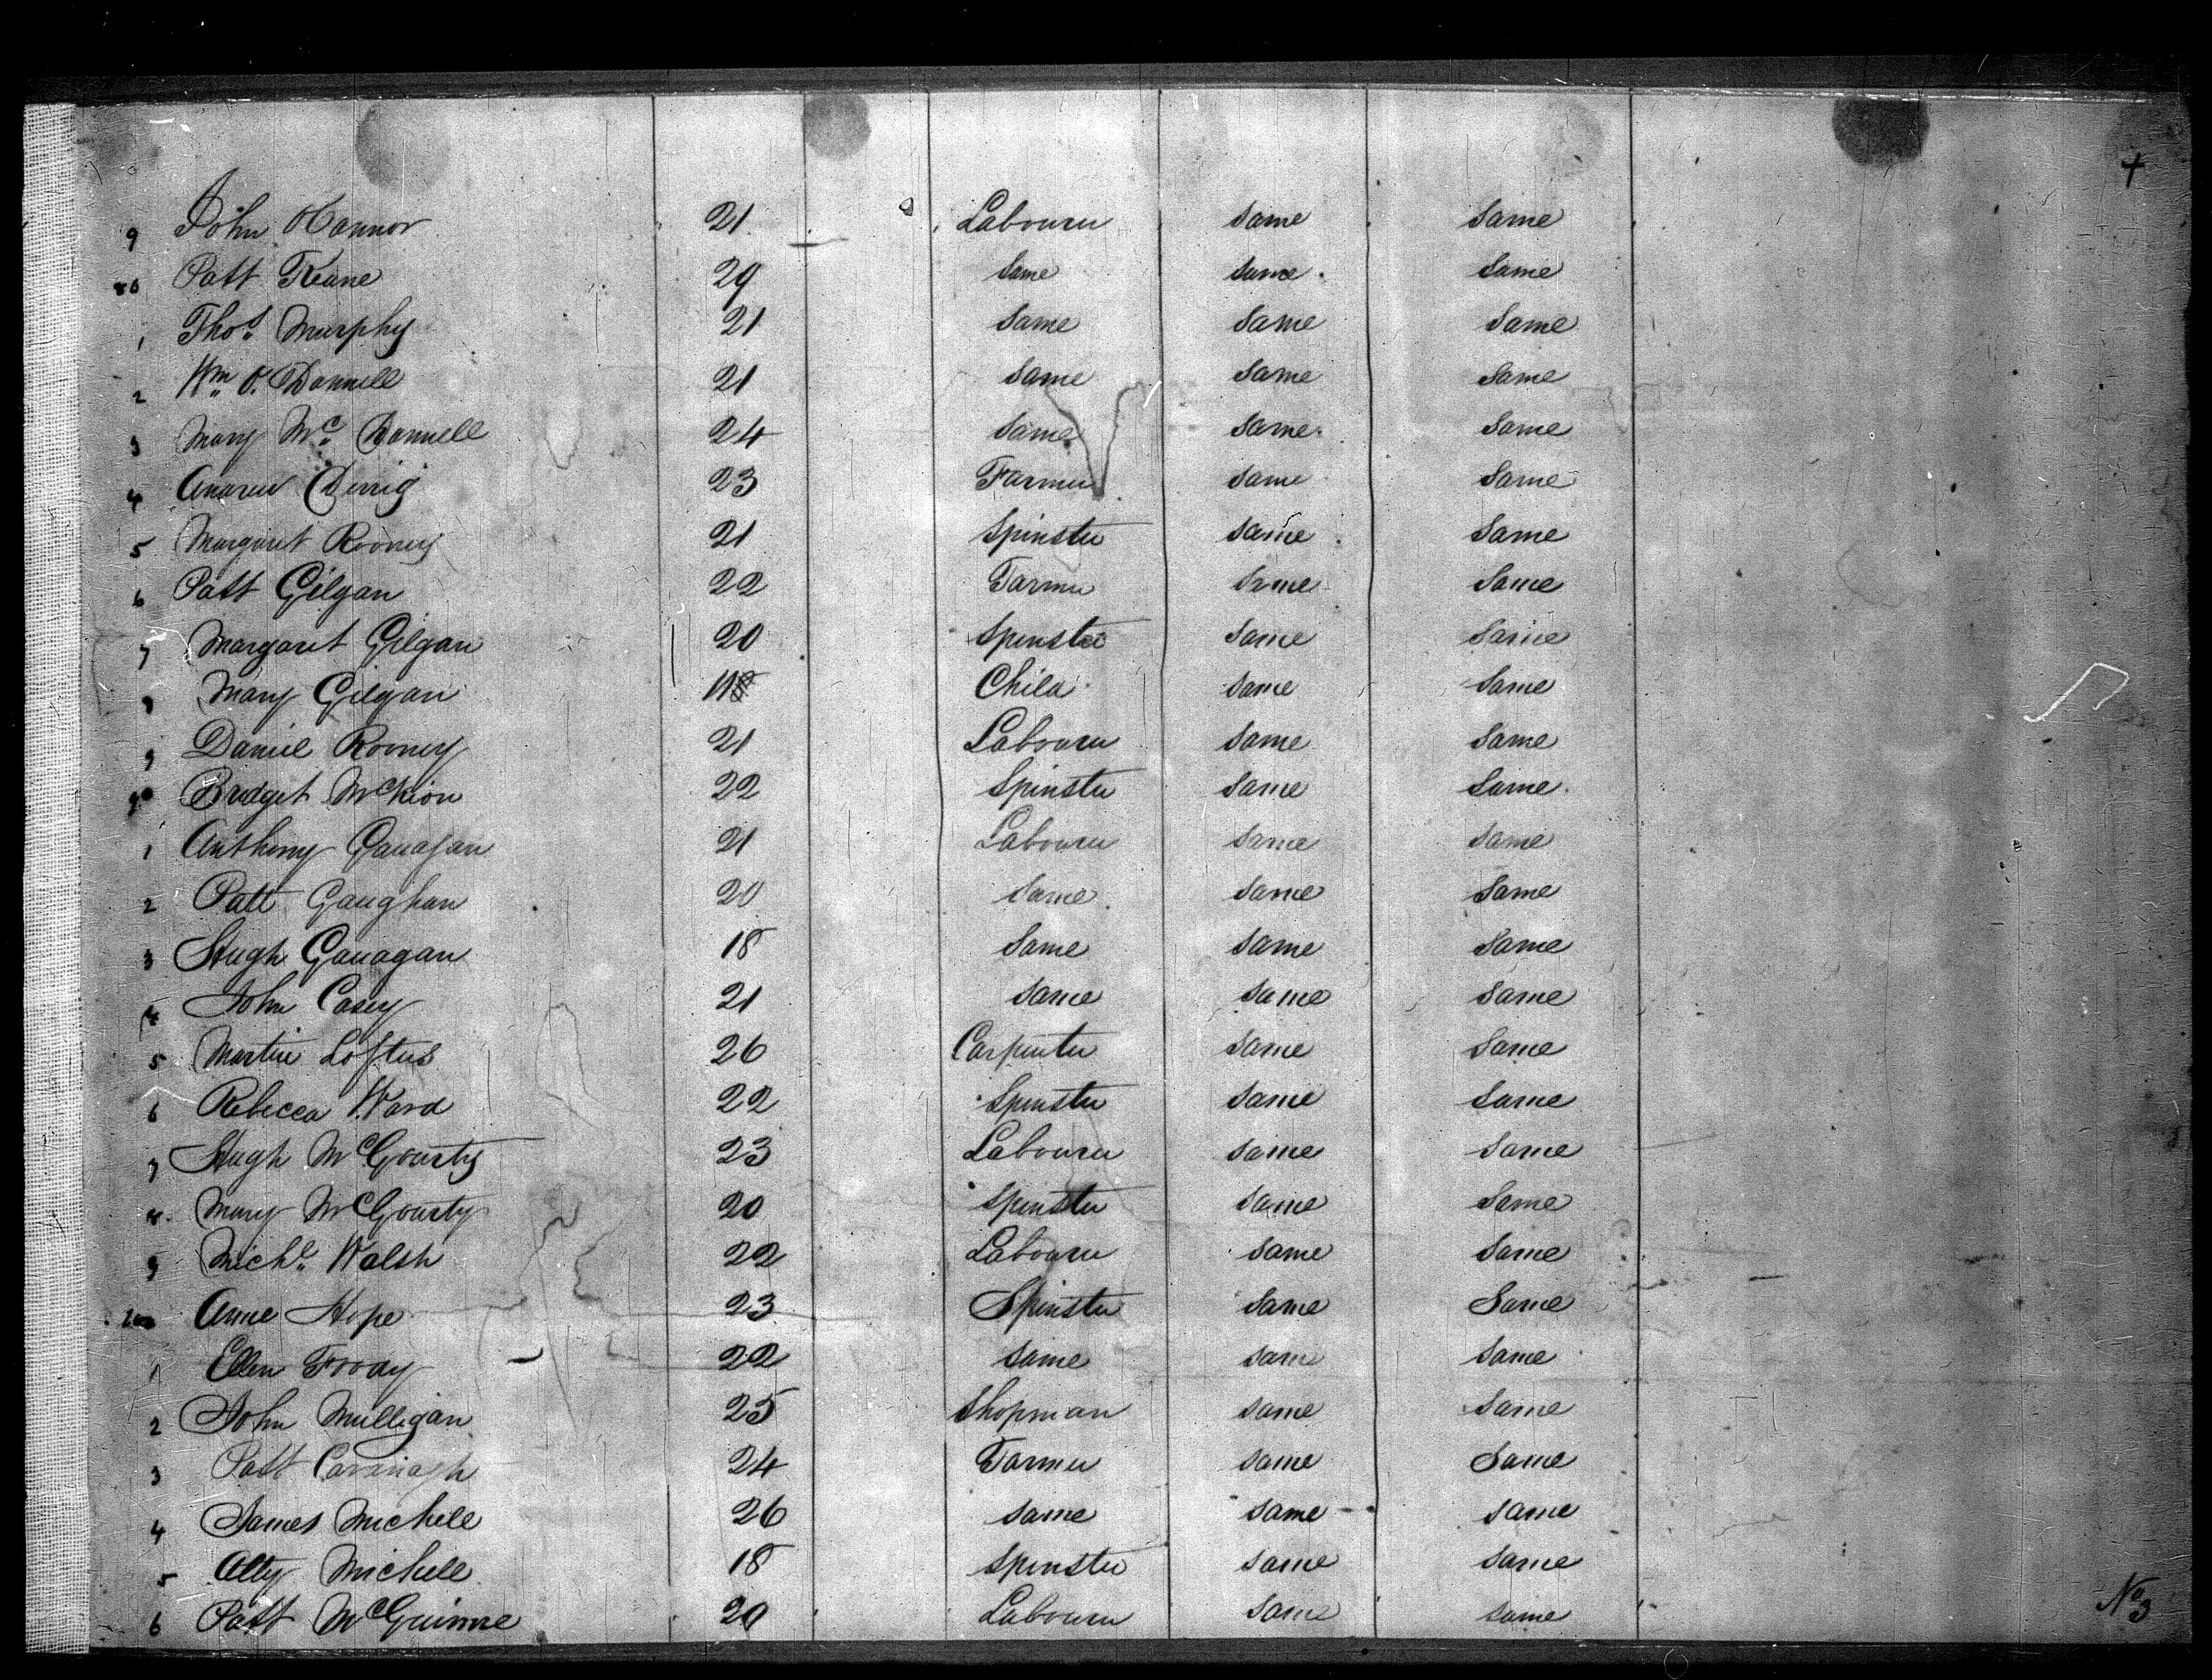 4
9 John OConnor 21 Labourer same same
80 Patt Keane 29 same same same
1 Thos. Murphy 21 same same same
2 Wm. O. Donnell 21 same same same
3 Mary Mc. Donnell 24 same same same
4 Andrew Derrig 23 Farmer same same
5 Margaret Rooney 21 Spinster same same
6 Patt Gilgan 22 Farmer same same
7 Margaret Gilgan 20 Spinster same same
8 Mary Gilgan 11 Child same same
9 Daniel Rooney 21 Labourer same same
90 Bridget McKeon 22 Spinster same same
1 Anthony Gauagan 21 Labourer same same
2 Patt Gaughan 20 same same same
3 Hugh Gauagan 18 same same same
4 John Casey 21 same same same
5 Martin Loftus 26 Carpenter same same
6 Rebecca Ward 22 Spinster same same
7 Hugh McGourty 23 Labourer same same
8 Mary McGourty 20 Spinster same same
9 Michl. Walsh 22 Labourer same same
100 Anne Hope 23 Spinster same same
1 Ellen Foody 22 same same same
2 John Mulligan 25 Shopman same same
3 Patt Cavanagh 24 Farmer same same
4 James Michell 26 same same same
5 Michell 18 Spinster same same
6 Patt McGuinne 20 Labourer same same
No 3